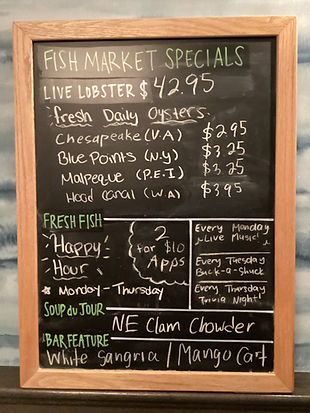 FISH MARKET SPECIALS
LIVE LOBSTER $42.95
fresh Daily Oysters
Chesapeake (V.A) $2.95
Blue Points (N.Y) $3.25
Malpeque (P.E.I) $3.25
Hood Canal (W.A) $3.95
FRESH FISH
Happy
Hour
* Monday - Thursday
2
for $10
Apps
Every Monday
Live Music!
Every Tuesday
Buck-a-Shuck
Every Thursday
Trivia Night!
SOUP du JOUR
NE Clam Chowder
BAR FEATURE
White Sangria / Mango Cart